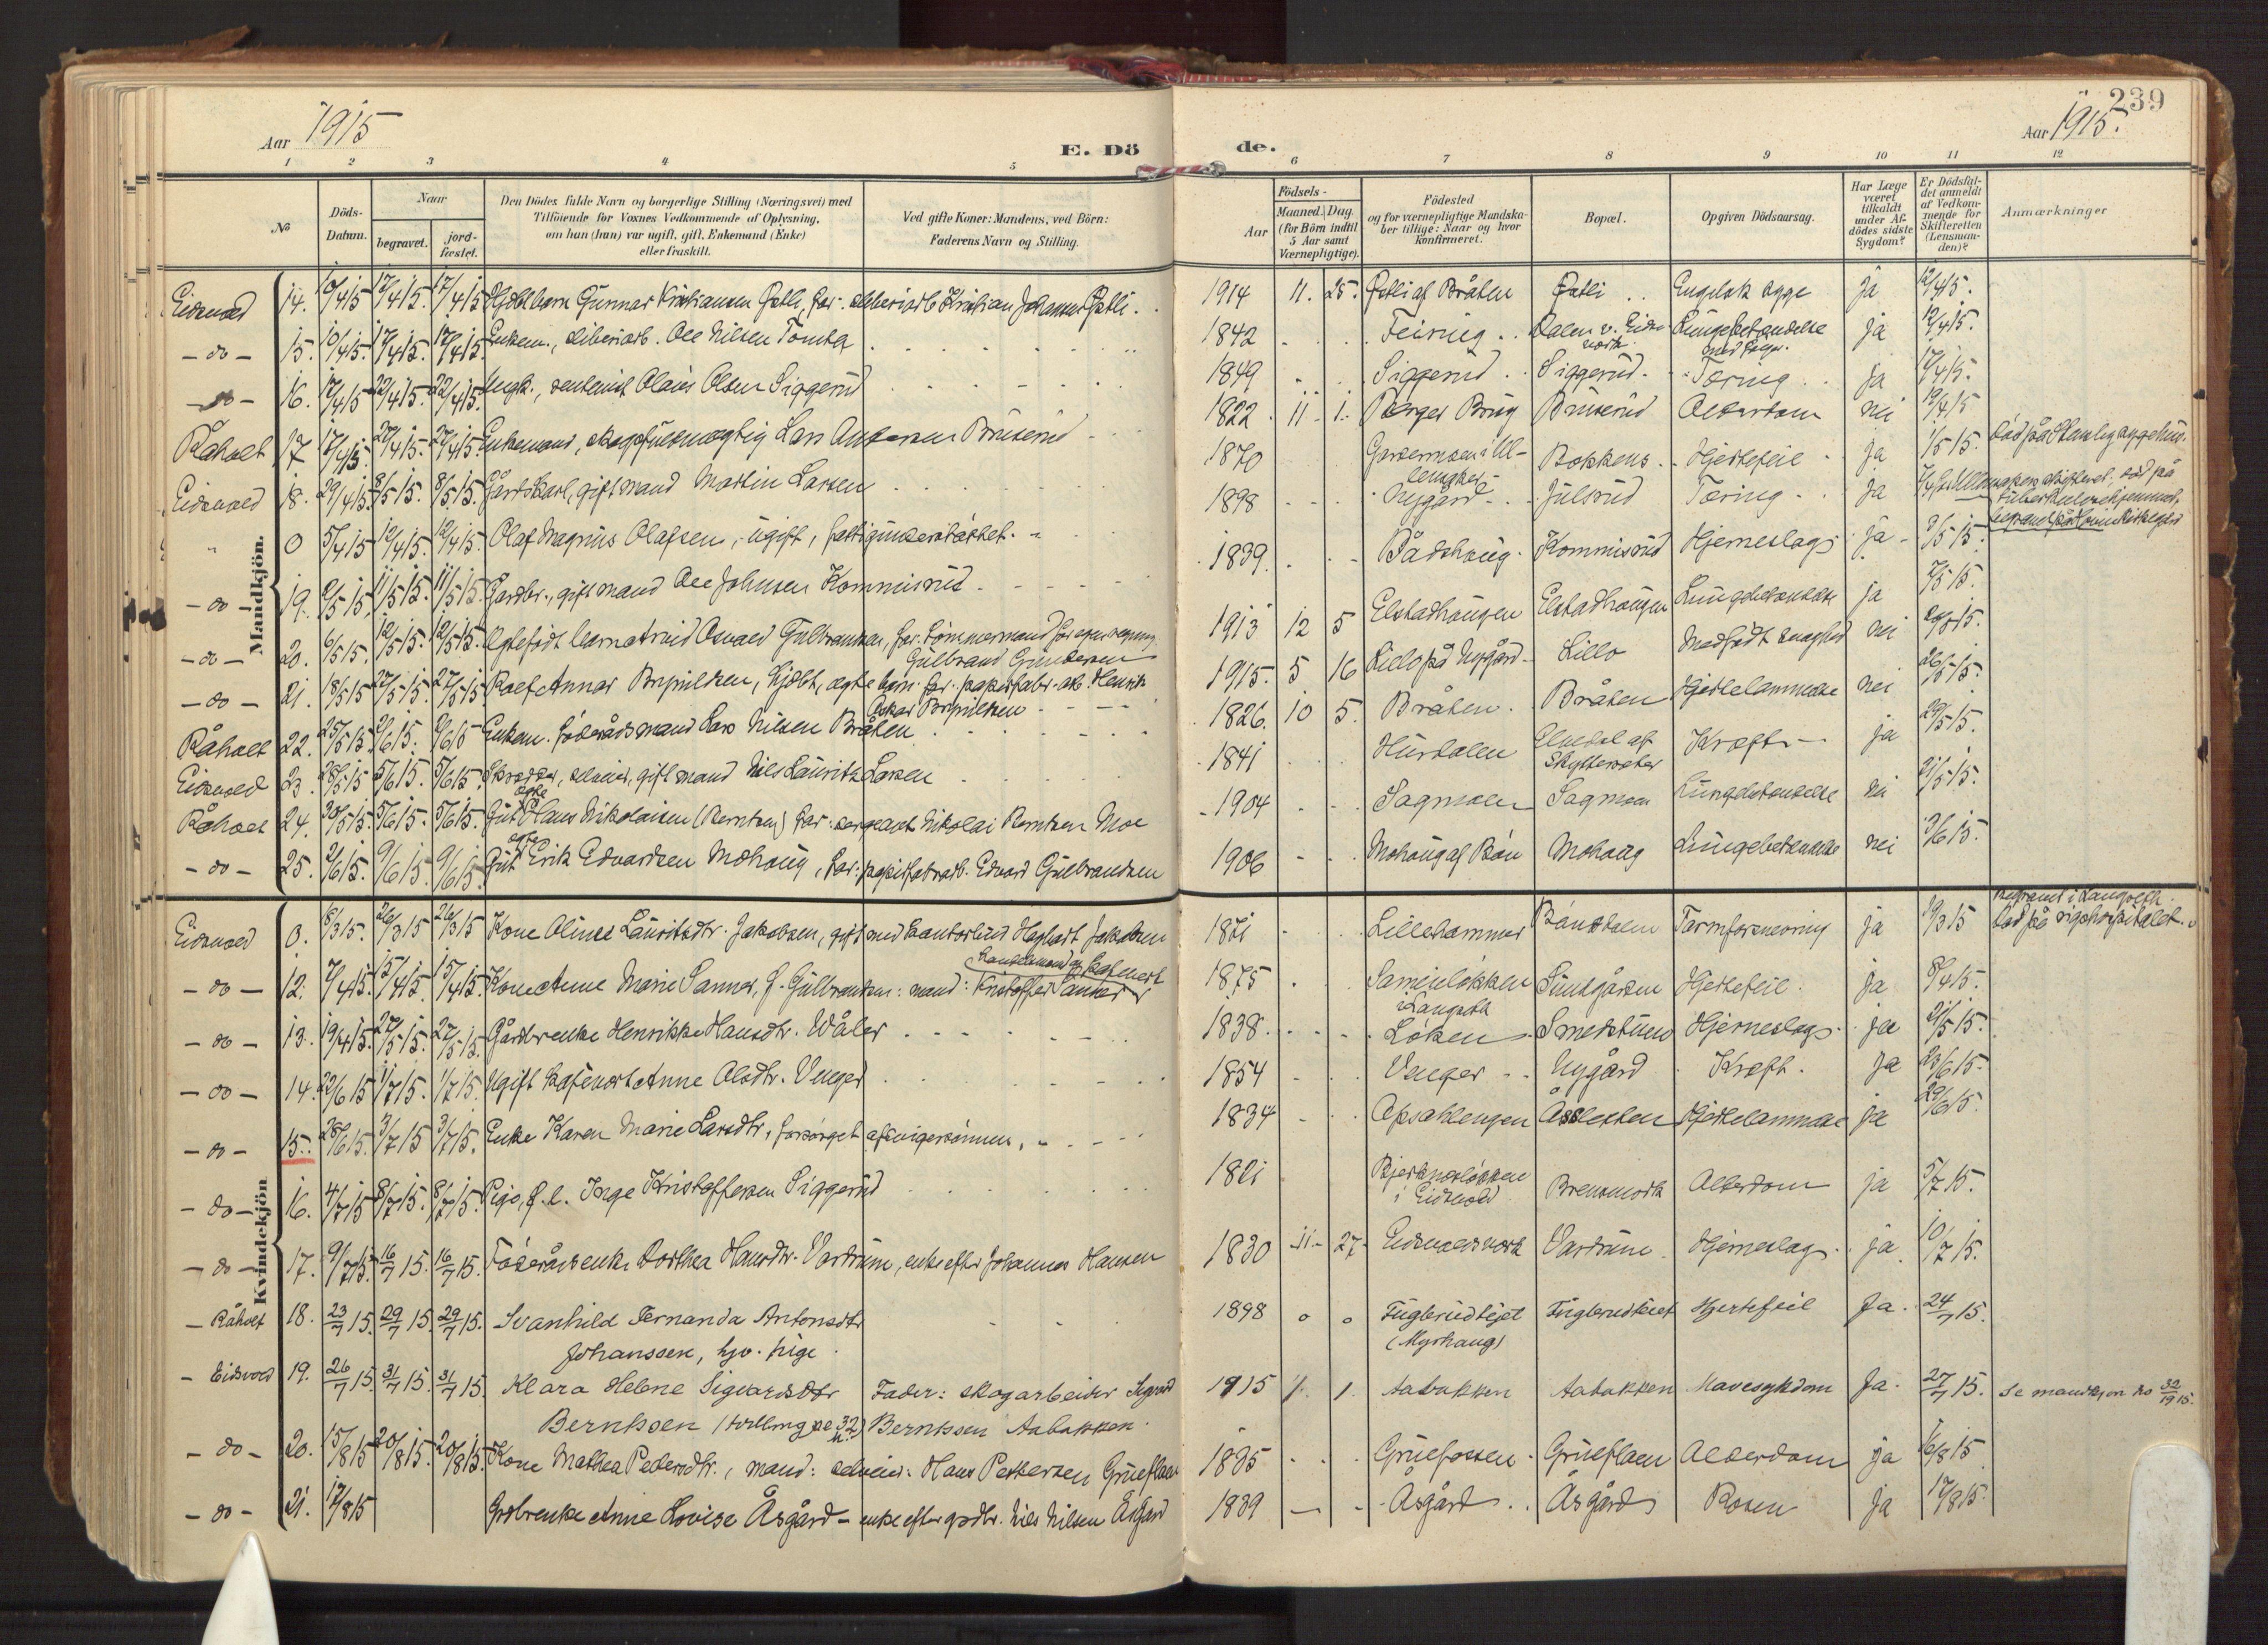 239
Aar 1915
E. Dö
de.
Aar 1915.
1 2 3 4 5 6 7 8 9 10 11 12
No
Döds-Datum.
Naar
begravet.
jord-fæstet.
Den Dödes fulde Navn og borgerlige Stilling (Næringsvei) med
Tilföiende for Voxnes Vedkommende af Oplysning,
om han (hun) var ugift, gift, Enkemand (Enke)
eller fraskilt.
Ved gifte Koner: Mandens, ved Börn:
Faderens Navn og Stilling.
Födsels-
Aar
Maaned. Dag.
(for Börn indtil
5 Aar samt
Værnepligtige).
Födested
og for værnepligtige Mandska-
ber tillige: Naar og hvor
konfirmeret.
Bopæl.
Opgiven Dödsaarsag.
Har Læge
været
tilkaldt
under Af-
dödes sidste
Sygdom?
Er Dödsfal-
det anmeldt
af Vedkom-
mende for
Skifteretten
(Lensman-
den)?
Anmærkninger
Mandkjön.
Eidsvold 14. 10/4 15 17/4 15. 17/4 15 Gunnar Kristiansen far: Kristian Johansen 1914 11. 25. Engelsk syge ja 12/4 15.
- do - 15. 10/4 15. 17/4 15. 17/4 15. Enkem., Ole Nilsen Tomta 1842 Feiring Dalen v. Eidsv. verk Lungebetændelse ja 12/4 15.
- do - 16. 17/4 15 22/4 15. 22/4 15. Ungk., Olaus Olsen Siggerud 1849 Siggerud Siggerud Tæring ja 17/4 15.
Råholt 17 17/4 15. 27/4 15. 27/4 15. Enkemand, Lars Andersen Brüserud 1822 11 1. Brüserud Alderdom nei 19/4 15
Eidsvold 18. 29/4 15. 8/5 15. 8/5 15. Gårdskarl, gift mand Martin Larsen 1870 Bokkens Hjertefeil ja 1/5 15.
" 0 5/4 15 12/4 15. 12/4 15. Olaf Magnus Olafsen, ugift, fattigunderstøttet. 1898 Nygård Julsrud Tæring ja
- do - 19. 2/5 15 11/5 15. 11/5 15. Gårdbr., gift mand Ole Johnsen Kommisrud 1839. Bådshaug Kommisrud Hjerneslag ja 3/5 15.
- do - 20. 6/5 15. 12/5 15. 12/5 15. Ægtefødt barn Arvid Osvald Gulbrandsen, far: tømmermand for egen regning
Gulbrand Gundersen 1913 12 5 Elstadhaugen Elstadhaugen Lungebetændelse ja 7/5 15.
- do - 21. 18/5 15 27/5 15 27/5 15 Rolf Annar hjdbt., ægte barn. far: papirfabr.arb. Henrik
Oskar 1915. 5 16 Lillo på Nygård Lillo Medfødt svaghed nei 20/5 15.
Råholt 22. 25/5 15 2/6 15. 2/6 15 Enkem. føderådsmand Lars Nilsen Bråten 1826. 10 5. Bråten Bråten Hjertelammelse nei 26/5 15.
Eidsvold 23. 28/5 15 5/6 15. 5/6 15. Skrædder, selveier, gift mand Nils Lauritz Larsen 1841 Hurdalen Kræft ja 29/5 15.
Råholt 24. 30/5 15 5/6 15. 5/6 15. ægte Gut Hans Nikolaisen (Berntsen) far: sergeant Nikolai Berntsen Moe 1904 Sagmoen Sagmoen Lungebetændelse nei 31/5 15.
- do - 25. 2/6 15. 9/6 15. 9/6 15. ægte Gut Erik Edvardsen Mohaug, far: papirfabrarb. Edvard Gulbrandsen 1906 Mohaug af Bøn Mohaug Lungebetændelse nei 3/6 15.
Kvindekjön
Eidsvold 0. 18/3 15. 26/3 15 26/3 15 Kone Oline Lauritsdtr. Jakobsen, gift med Jakobsen 1871 Lillehammer Bønsdalen Tarmforsnevring ja 19/3 15 Begravet i Langseth
død på rigshospitalet.
- do - 12. 7/4 15. 15/4 15 15/4 15. Kone Anne Marie Sanner, f. Gulbrandsen: mand: Kristoffer Sanner 1875 Langseth Sundgården Hjertefeil. ja 8/4 15.
- do - 13. 19/4 15. 27/5 15. 27/5 15. Gårdbr.enke Henrikke Hansdtr. Wåler 1838. Løken Smedstuen Hjerneslag ja 21/5 15.
- do - 14. 22/6 15 1/7 15. 1/7 15. Ugift Anne Olsdtr. Venger 1854 Venger Nygård Kræft. ja 23/6 15.
- do - 15. 28/6 15. 3/7 15 3/7 15. Enke Karen Marie Larsdtr., forsørget af svigersønnen. 1834 Opsahlengen Åssletten Hjertelammelse ja 29/6 15.
- do - 16. 4/7 15 8/7 15. 8/7 15. Pige, f.l. Inge Kristoffersen Siggerud 1821 i Eidsvold Alderdom ja 5/7 15.
- do - 17. 9/7 15. 16/7 15. 16/7 15. Føderådsenke Dorthea Hansdtr. Vardrum, enke efter Johannes Hansen 1830 11 27 Eidsvolds verk Vardrum Hjerneslag ja 10/7 15.
- Råholt 18. 23/7 15. 29/7 15. 29/7 15. Svanhild Fernanda Antonsdtr
Johanssen, hjv. pige. 1898 o o Fuglerudeiet
(Myrhaug) Fuglerudeiet Hjertefeil Ja. 24/7 15.
- Eidsvold 19. 26/7 15. 31/7 15. 31/7 15. Klara Helene Sigvardsdtr
Berntssen (tvilling se 32) Fader: skogarbeider Sigvard
Berntssen Aabakken. 1915 1. 1 Aabakken Aabakken Mavesykdom Ja. 27/7 15. Se mandkjøn no 32/1915.
- do - 20. 15/8 15 20/8 15. 20/8 15. Kone Mathea Pedersdtr., mand: selveier. Hans Pettersen Grueflaen 1835 Gruefossen Grueflaen Alderdom ja 16/8 15
- do - 21. 17/8 15 Grdbr.enke Anne Lovise Åsgård - enke efter grdbr. Nils Nilsen Åsgård 1839 Åsgård Åsgård Rosen Ja 17/8 15.